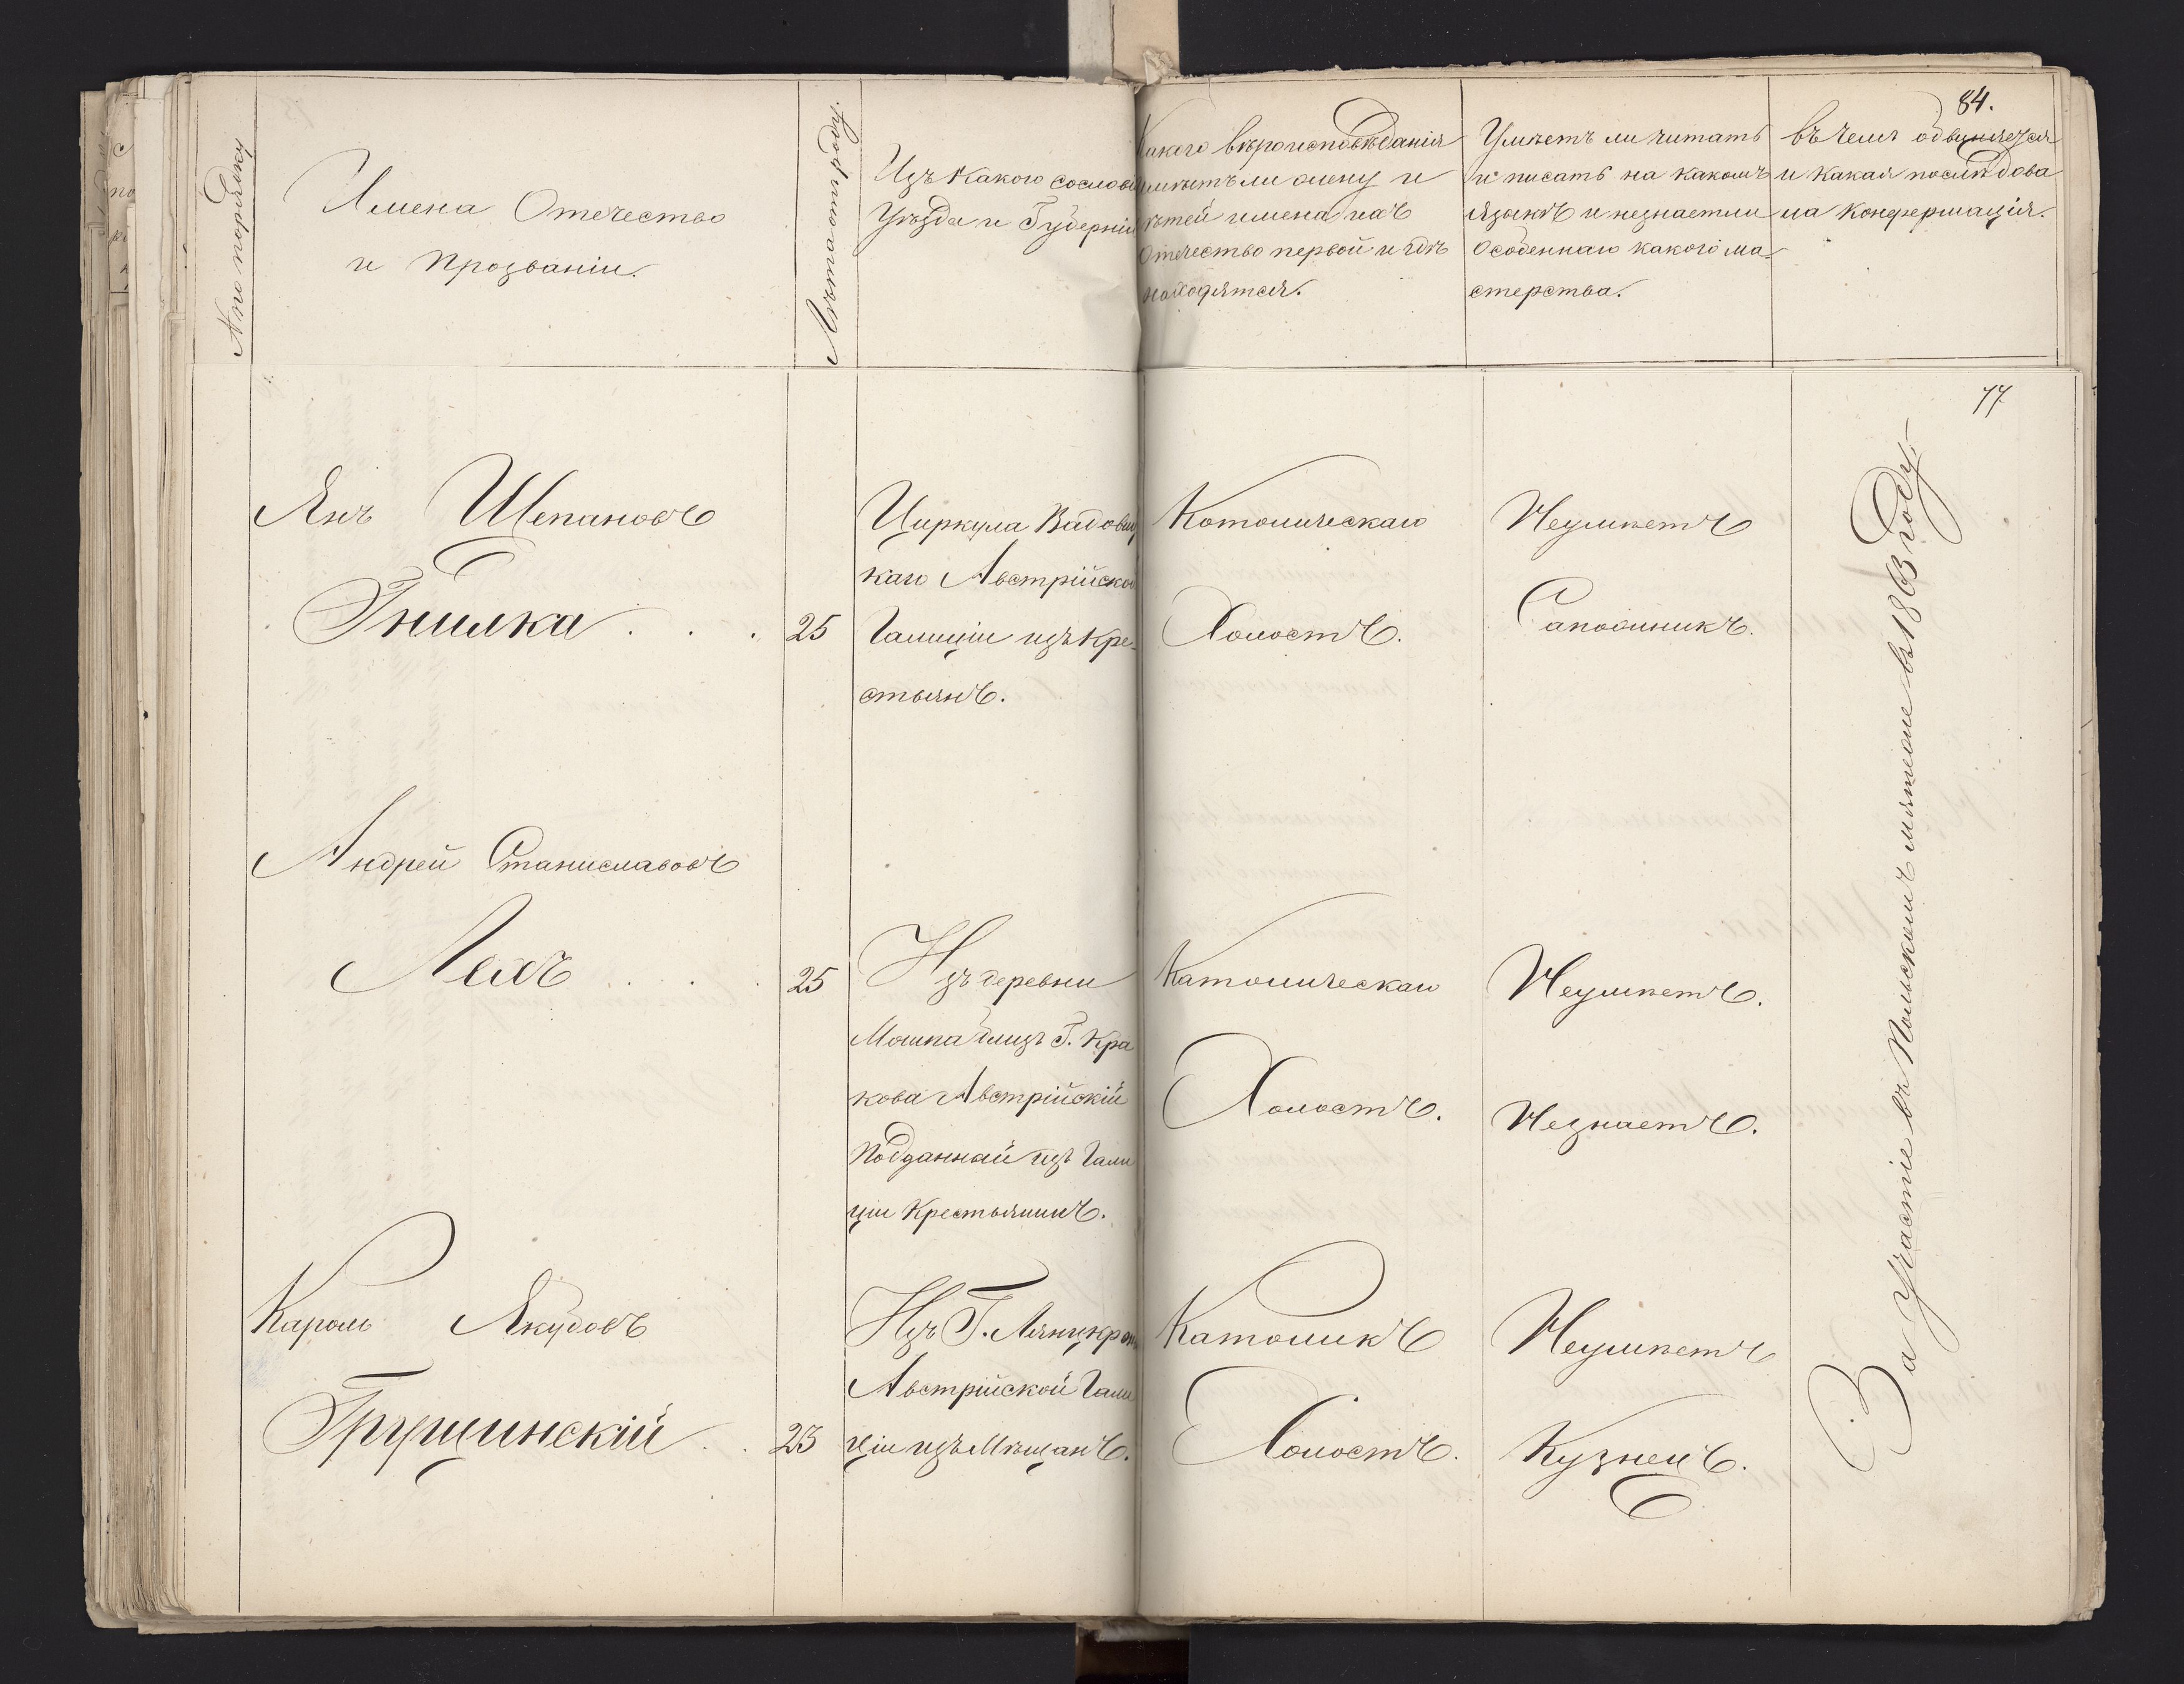 84.
№ по порядку
Имена Отечество
и Прозваніи.
Лѣта отъ роду.
Изъ какого сословія
Уѣзда и Губерніи
Какого вѣроисповѣданія
имѣетъ ли жену и
дѣтей имена ихъ
Отечество первой и гдѣ
находятся.
Умѣетъ ли читать
и писать на какомъ
языкѣ и незнаетли
Особеннаго какого ма-
стерства.
въ чемъ обвиняется
и какая послѣдова
ла Конфермація.
77
Янъ Щепановъ
Гнилка . . .
25
Циркула Вадовиц
каго Австрійской
Галиціи изъ Кре-
стьянъ.
Католическаго
Холостъ.
Неумѣетъ
Сапожникъ.
Андрей Станиславовъ
Лехъ . . .
25
Изъ деревни
близъ Г. Кра
кова Австрійскій
Подданнай изъ Гали
ціи Крестьянинъ.
Католическаго
Холостъ.
Неумѣетъ.
Незнаетъ.
Кароль Якубовъ
Грущинскій . .
23
Изъ Г. Лянцкрон
Австрійской Гали
ціи изъ Мѣщанъ.
Католикъ
Холостъ.
Неумѣетъ
Кузнецъ.
За участіе въ Польскомъ мятеже въ 1863 году.